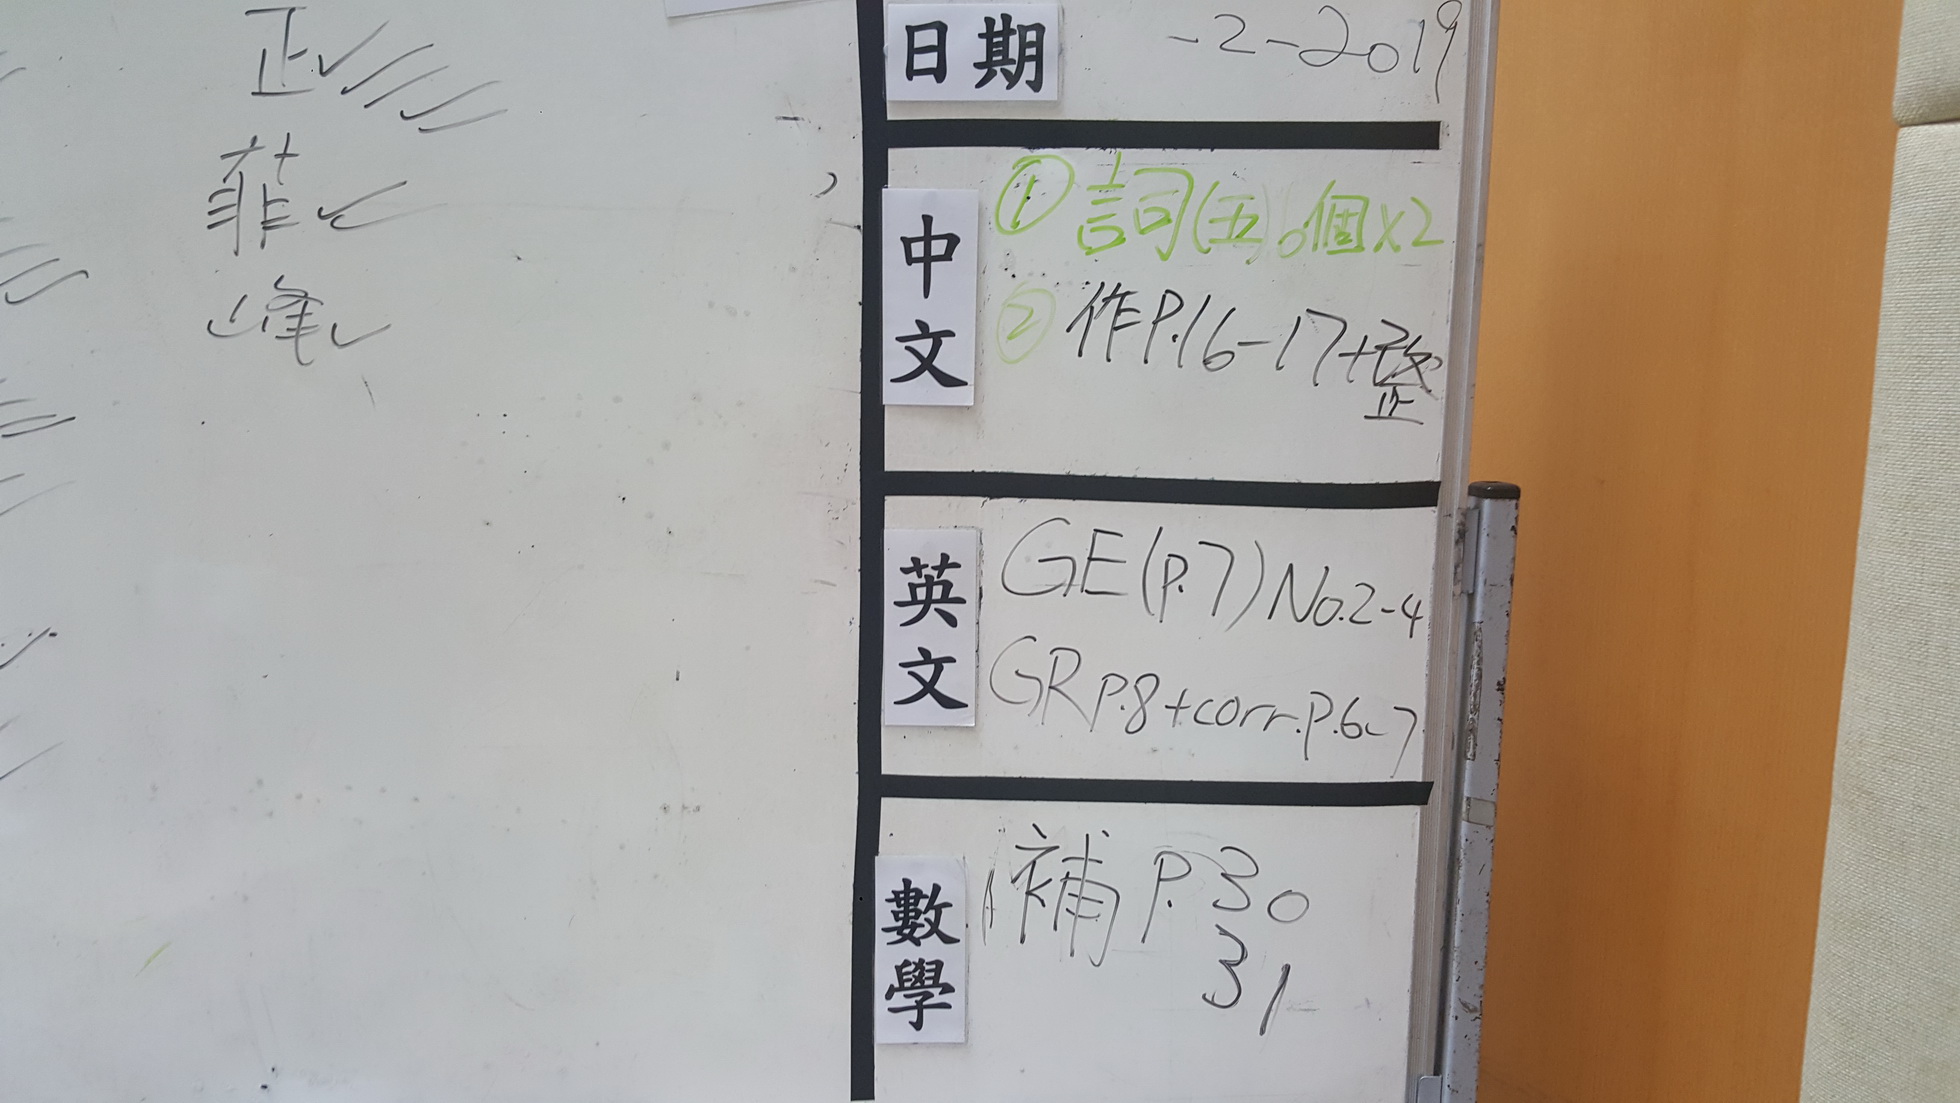 正
菲
峰
日期
-2-2019
中文
① 詞(五)。個x2
② 作P.16-17+整
英文
GE(p.7) No.2-4
GR P.8+corr.P.6-7
數學
補 P.30
31